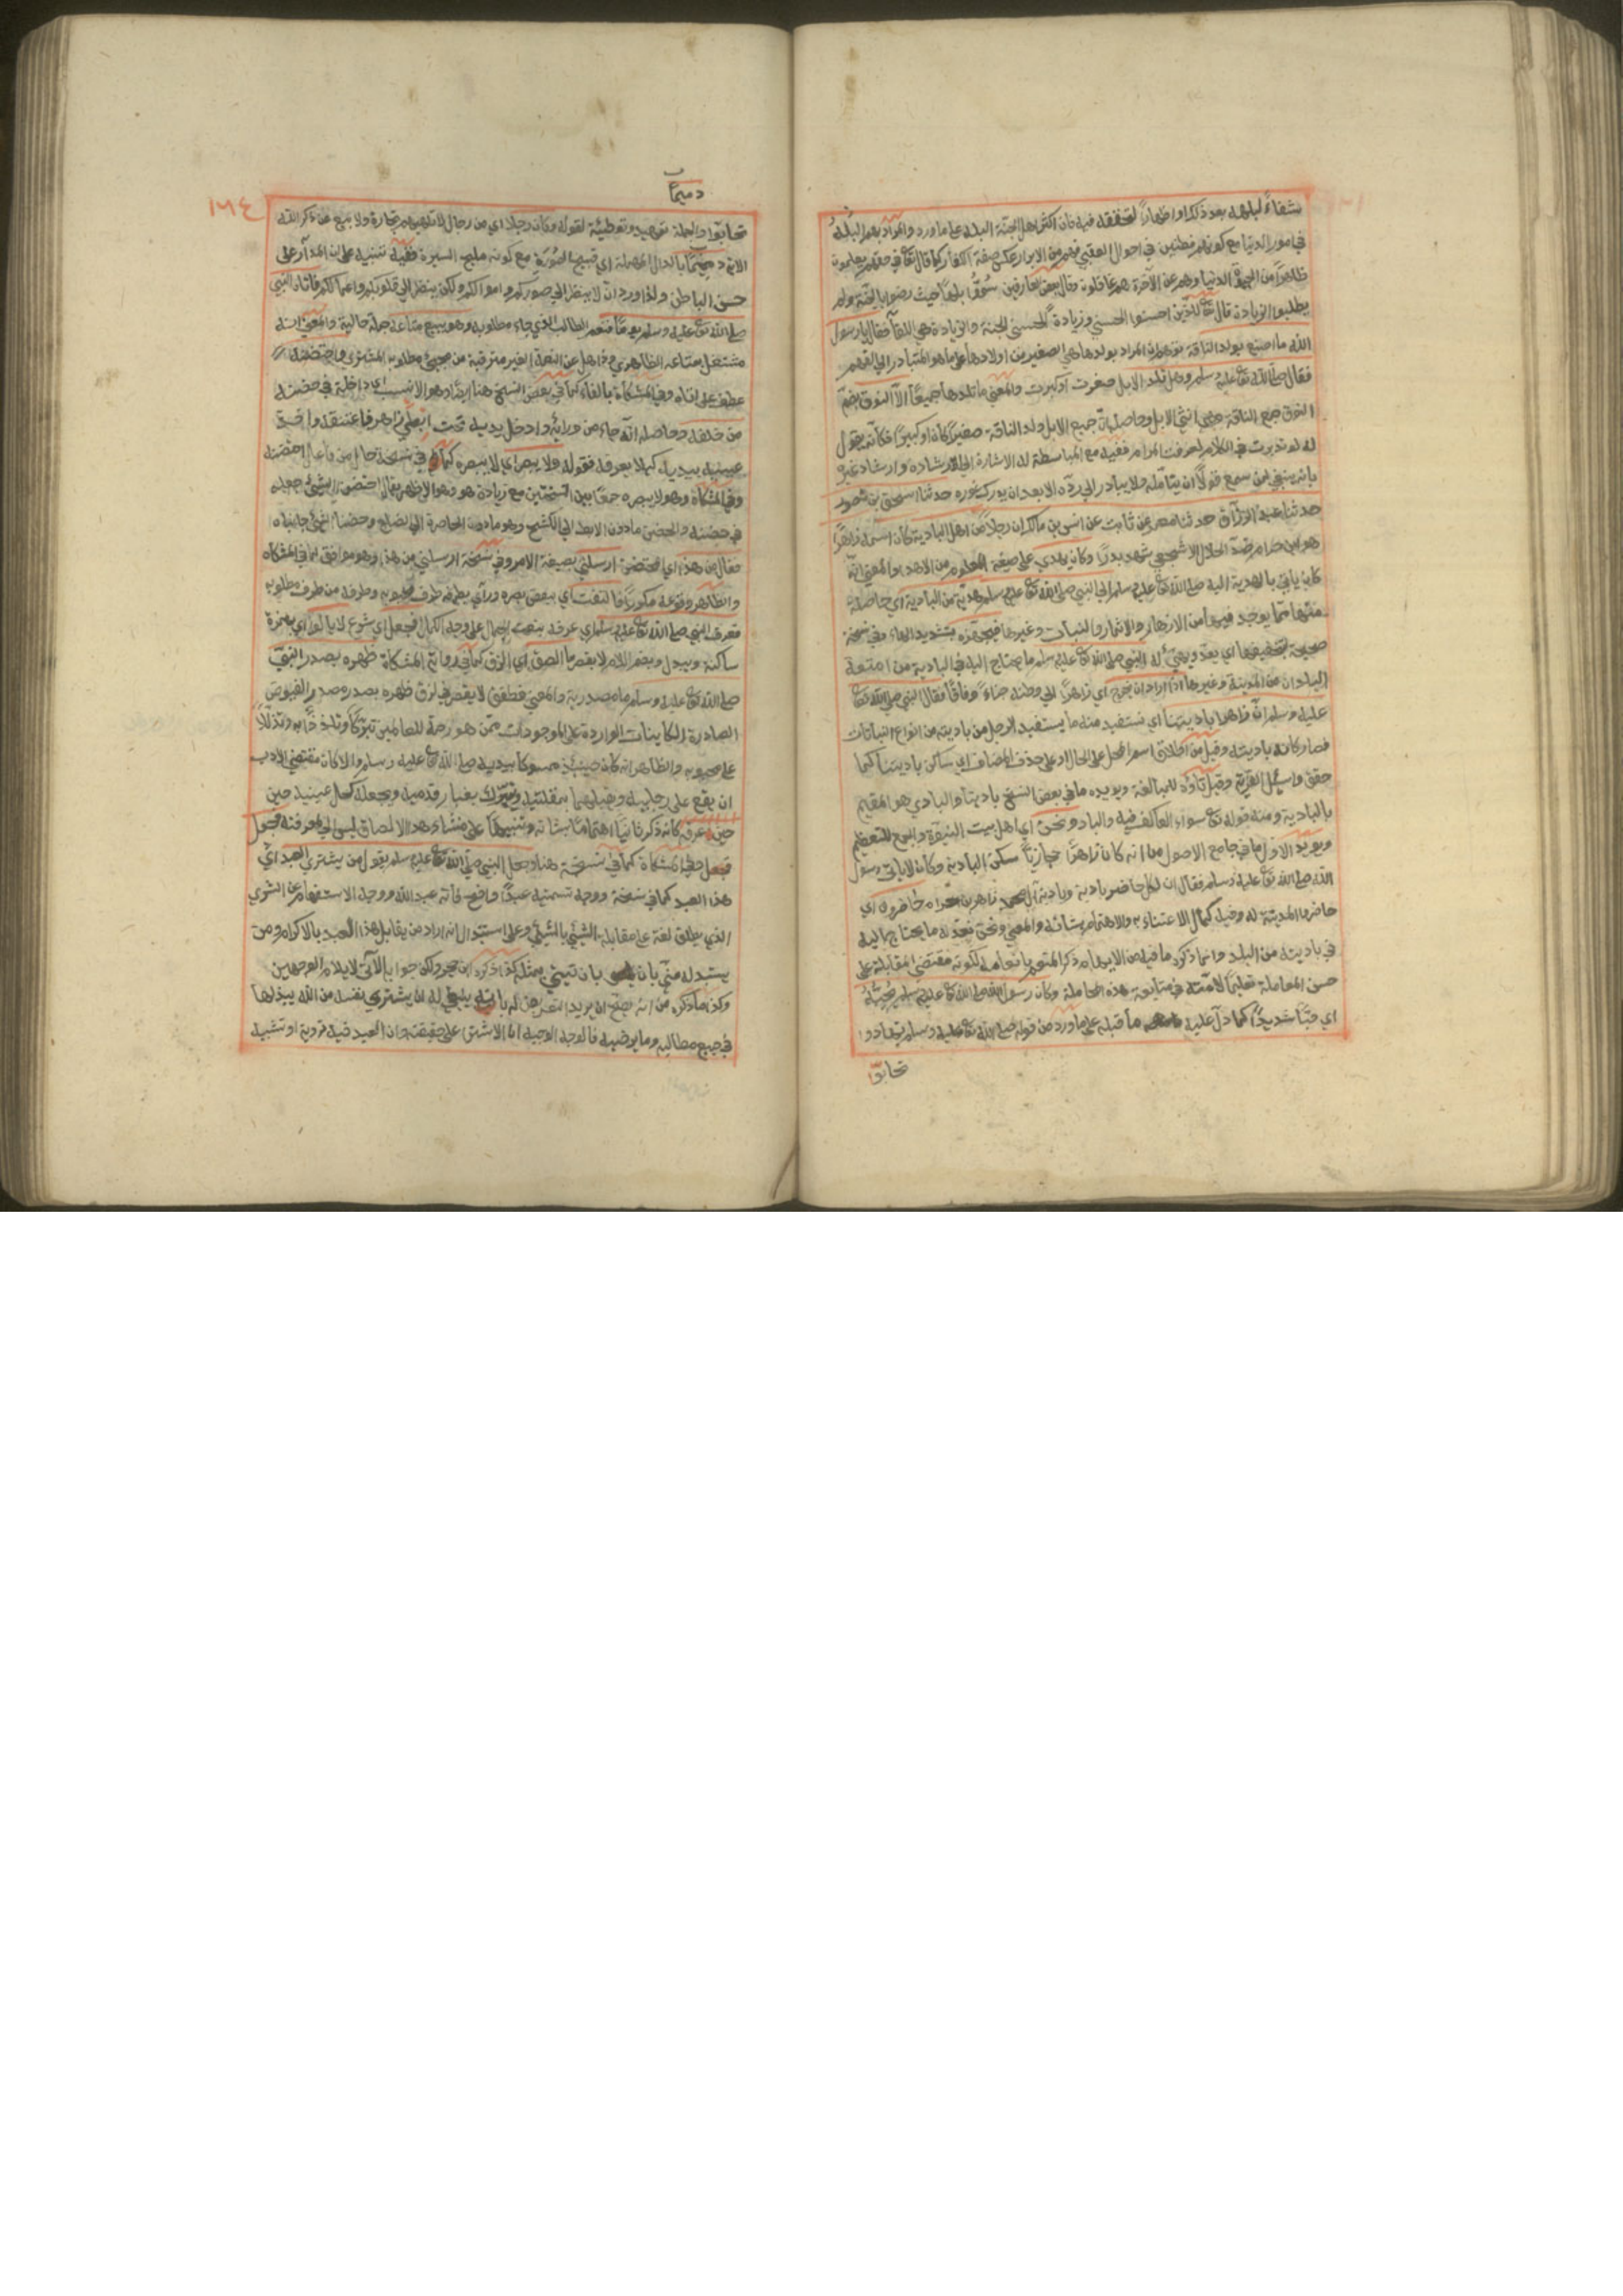 شفاءً لبلهه بعد ذكائه اواظهارًا لتحققه فيه فان اكثر اهل الجنة البله على ما ورد والمراد بهم البله
في امور الدنيا مع كونهم فطنين في احوال العقبي فهم من الابرار عكس صفة الكفار كما قال تع في حقهم يعلمون
ظاهرًا من الحيوة الدنيا وهم عن الآخرة هم غافلون وقال بعض العارفين سُمّوا بلهًا حيث رضوا بالجنة ولم
يطلبوا الزيادة قال تع للذين احسنوا الحسني وزيادة فالحسني الجنة والزيادة هي اللقآ فقال يا رسول
الله ما اصنع بولد الناقة توهم ان المراد بولدها هي الصغير من اولادها على ما هو المتبادر الي الفهم
فقال صلى الله تع عليه وسلم وهل تلد الابل صغرت او كبرت والمعني ما تلدها جميعًا الا النوق بضم
النون جمع الناقة وهي انثي الابل وحاصله ان جميع الابل ولد الناقة صغيرًا كان او كبيرًا فكانه يقول
له لو تدبرت في الكلام لعرفت المرام ففيه مع المباسطة له الاشارة الى ارشاده وارشاد غيره
بانه ينبغي لمن سمع قولًا ان يتأمله ولا يبادر الي ردّه الا بعد ان يدرك غوره حدثنا اسحق بن منصور
حدثنا عبد الرزاق حدثنا معمر عن ثابت عن انس بن مالك ان رجلًا من اهل البادية كان اسمه زاهرًا
هو ابن حرام ضدّ الحلال الاشجعي شهد بدرًا وكان يهدي على صيغة المعلوم من الاهداء والمعني انه
كان ياتي بالهدية اليه صلى الله تع عليه وسلم الي النبي صلى الله تع عليه وسلم هدية من البادية اي حاصلة
منها مما يوجد فيها من الازهار والاثمار والنبات وغيرها فيجهزه بتشديد الهاء وفي نسخة
صحيحة بتخفيفها اي يعدّ ويهيئ له النبي صلى الله تع عليه وسلم ما يحتاج اليه في البادية من امتعة
البلدان من المدينة وغيرها اذا اراد ان يخرج اي زاهرًا الي وطنه جزاءً وفاقًا فقال النبي صلى الله تع
عليه وسلم ان زاهرا باديتنا اي نستفيد منه ما يستفيد الرجل من باديته من انواع النباتات
فصار كانه باديته وقيل من اطلاق اسم المحل على الحال او على حذف المضاف اي ساكن باديتنا كما
حقق واسئل القرية وقيل تاؤه للمبالغة ويؤيده ما في بعض النسخ بادينا والبادي هو المقيم
بالبادية ومنه قوله تع سواء العاكف فيه والباد ونحن اي اهل بيت النبوة والجمع للتعظيم
ويؤيد الاول ما في جامع الاصول من انه كان زاهرًا حجازيًّا سكن البادية وكان لا ياتي رسول
الله صلى الله تع عليه وسلم فقال ان لكل حاضر بادية وبادية آل محمد زاهر بن حرام حاضروه اي
حاضروا المدينة له وفيه كمال الاعتناء به والاهتمام بشانه والمعني ونحن نعدّ له ما يحتاج اليه
في باديته من البلد وانما ذكره
حسن المعاملة تعليمًا لامته في متابعة هذه المجاملة وكان رسول الله صلى الله تع عليه وسلم يُحِبُّهُ
اي حبًّا شديدًا كما دلّ عليه ما قبله على ما ورد من قوله صلى الله تع عليه وسلم تهادوا
تحابّوا
دميمًا
١٦٤
تحابّوا والجملة تمهيد وتوطئة لقوله وكان رجلا اي من رجال لا تلهيهم تجارة ولا بيع عن ذكر الله
الاية دميمًا بالدال المهملة اي قبيح الصورة مع كونه مليح السيرة ففيه تنبيه على ان المدار على
حسن الباطن ولذا ورد ان لا ينظر الي صوركم واموالكم ولكن ينظر الي قلوبكم واعمالكم فاتاه النبي
صلى الله تع عليه وسلم يومًا فنعم الطالب الذي جاء مطلوبه وهو يبيع متاعه جملة حالية والمعني انه
مشتغل بمتاعه الظاهري وذاهل عن النعمة الغير مترقبة من مجيئ مطلوبه المشتري فاحتضنه
عطف على اتاه وفي المشكاة بالفاء كما في بعض النسخ هنا ايضًا وهو الانسب اي داخله في حضنه
من خلفه وحاصله انه جاء من ورائه وادخل يديه تحت ابطي زاهر فاعتنقه واخذ
عينيه بيديه كيلا يعرفه فقوله ولا يبصر اي لا يبصره كما في نسخة حال من فاعل احتضنه
وفي المشكاة وهو لا يبصره جمعًا بين النسختين مع زيادة هو وهو الاظهر يقال احتضن الشيئ جعله
في حضنه والحضن ما دون الابط الي الكشح وهو ما دون الخاصرة الي الضلع وحضنا الشيئ جانباه
فقال من هذا اي المحتضن ارسلني بصيغة الامر وفي نسخة ارسلني من هذا وهو موافق لما في المشكاة
والظاهر وقوعه مكررًا فالتفت اي ببعض بصره ورآى بطرفه طرف محبوبه وطرفه من طرف مطلوبه
فعرف النبي صلى الله تع عليه وسلم اي عرفه بنعت الجمال على وجه الكمال فجعل اي شرع لا يالوا اي بهمزة
ساكنة ويبدل وبضم اللام لا يقصر ما الصق اي الزق كما في رواية المشكاة ظهره بصدر النبي
صلى الله تع عليه وسلم ما مصدرية والمعني فطفق لا يقصر في لزق ظهره بصدره مصدر الفيوض
الصادرة الكاينات الواردة على الموجودات ممن هو رحمة للعالمين تبركًا وتلذذًا به وتذللًا
على محبوبه والظاهر انه كان حينئذ ممسوكا بيديه صلى الله تع عليه وسلم والا كان مقتضي الادب
ان يقع على رجليه ويقبلهما بمقلتيه ويتبرك بغبار قدميه ويجعله كحل عينيه حين
حين عرفه كانه ذكر ثانيًا اهتمامًا بشانه وتنبيهًا على منشاء هذا الالصاق ليس الا لمعرفته فجعل
فجعل وفي المشكاة كما في نسخة هنا وجعل النبي صلى الله تع عليه وسلم يقول من يشتري العبد اي
هذا العبد كما في نسخة ووجه تسميته عبدًا واضح فانه عبد الله ووجه الاستفهام عن الشري
الذي يطلق لغة على مقابلة الشيئ بالشيئ وعلى استبدال انه اراد من يقابل هذا العبد بالاكرام ومن
يستبدله منّي بان ياتيني بمثله كذا ذكره ابن حجر ولكن جوابه الآتي لا يلايم الوجهين
وكذا ما ذكره من انه يصح ان يريد التعريض له بانه ينبغي له ان يشتري نفسه من الله يبذلها
في جميع مطالبه وما يرضيه فالوجه الاوجيه ان الاشترا على حقيقته وان العبد فيه تورية او تشبيه